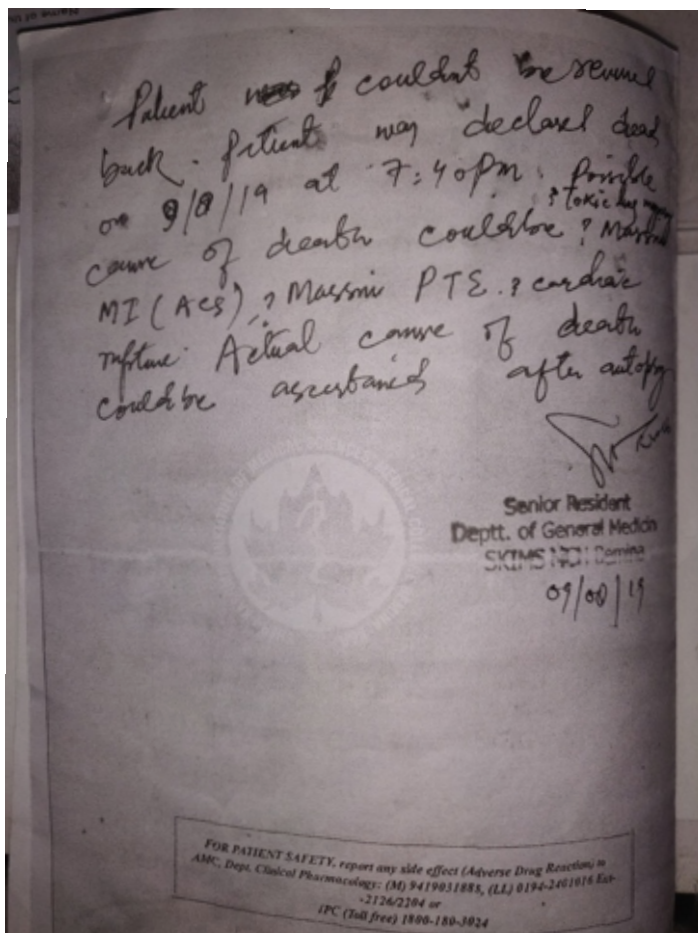 Patient couldnt be revived
back. Patient was declared dead
on 9/8/19 at 7:40 pm. Possible
? toxic
cause of death could be ? Massive
MI (ACS), ? Massive PTE. ? cardiac
rupture. Actual cause of death
could be ascertained after autopsy
Senior Resident
Deptt. of General Medicin
SKIMS Bemina
09/08/19
FOR PATIENT SAFETY, report any side effect (Adverse Drug Reaction) to
AMC, Dept. Clinical Pharmacology: (M) 9419031888, (LL) 0194-2401016 Ext-
-2126/2204 or
IPC (Toll free) 1800-180-3024